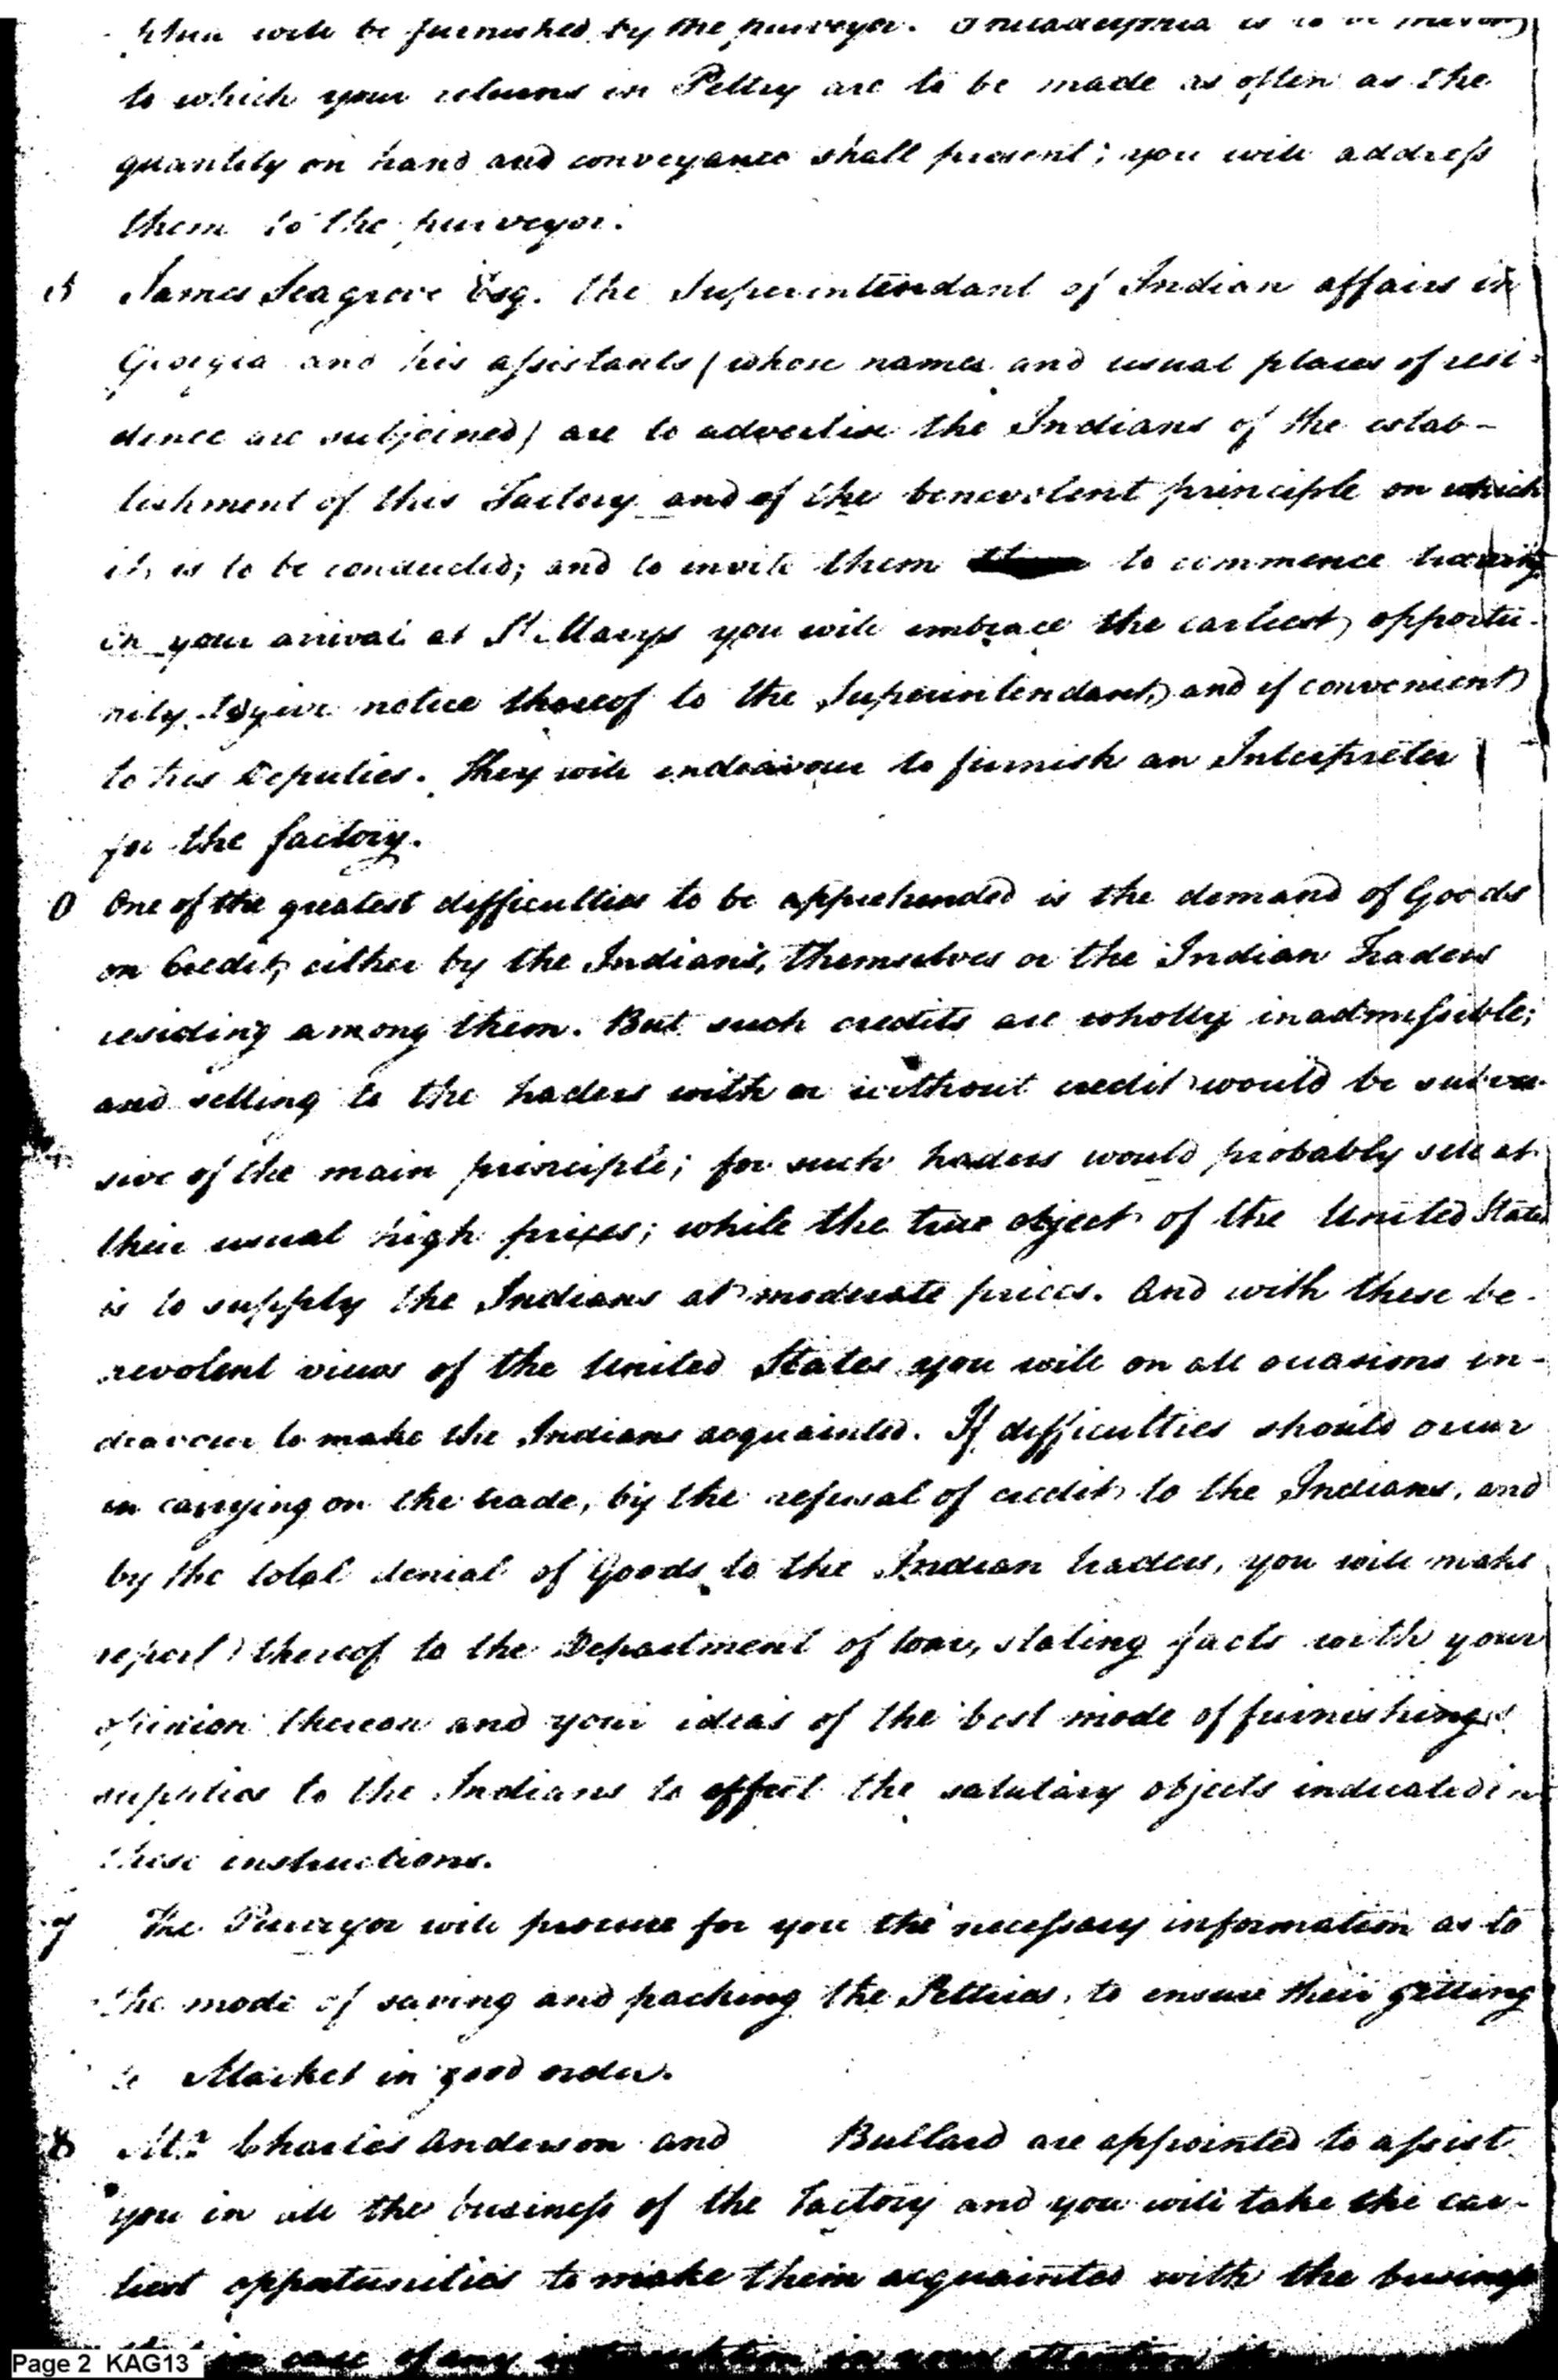 will be furnished by the purveyor. Philadelphia is to be
to which your returns in Peltry are to be made as often as the
quantity on hand and conveyance shall present; you will address
them to the purveyor.
5 James Seagrove Esq. the Superintendant of Indian affairs in
Georgia and his assistants (whose names and usual places of resi-
dence are subjoined) are to advertise the Indians of the estab-
lishment of this Factory and of the benevolent principle on which
it is to be conducted; and to invite them to commence trading
on your arrival at St. Marys you will embrace the earliest opportu-
nity to give notice thereof to the Superintendant, and if convenient
to his Deputies. They will endeavour to furnish an Interpreter
for the factory.
One of the greatest difficulties to be apprehended is the demand of Goods
on Credit, either by the Indians, themselves or the Indian Traders
residing among them. But such credits are wholly inadmissible;
and selling to the traders with or without credit would be subver-
sive of the main principle; for such traders would probably sell at
their usual high prices; while the true object of the United States
is to supply the Indians at moderate prices. And with these be-
nevolent views of the United States you will on all occasions en-
deavour to make the Indians acquainted. If difficulties should occur
in carrying on the trade, by the refusal of credit to the Indians, and
by the total denial of Goods to the Indian traders, you will make
report thereof to the Department of War, stating facts with your
opinion thereon and your ideas of the best mode of furnishing
supplies to the Indians to effect the salutary objects indicated in
these instructions.
The Purveyor will procure for you the necessary information as to
the mode of saving and packing the Peltries, to ensure their getting
to Market in good order.
8 Mr. Charles Anderson and Bullard are appointed to assist
you in all the business of the Factory and you will take the ear-
liest opportunities to make them acquainted with the business
in case of any interruption in your attention
Page 2 KAG13